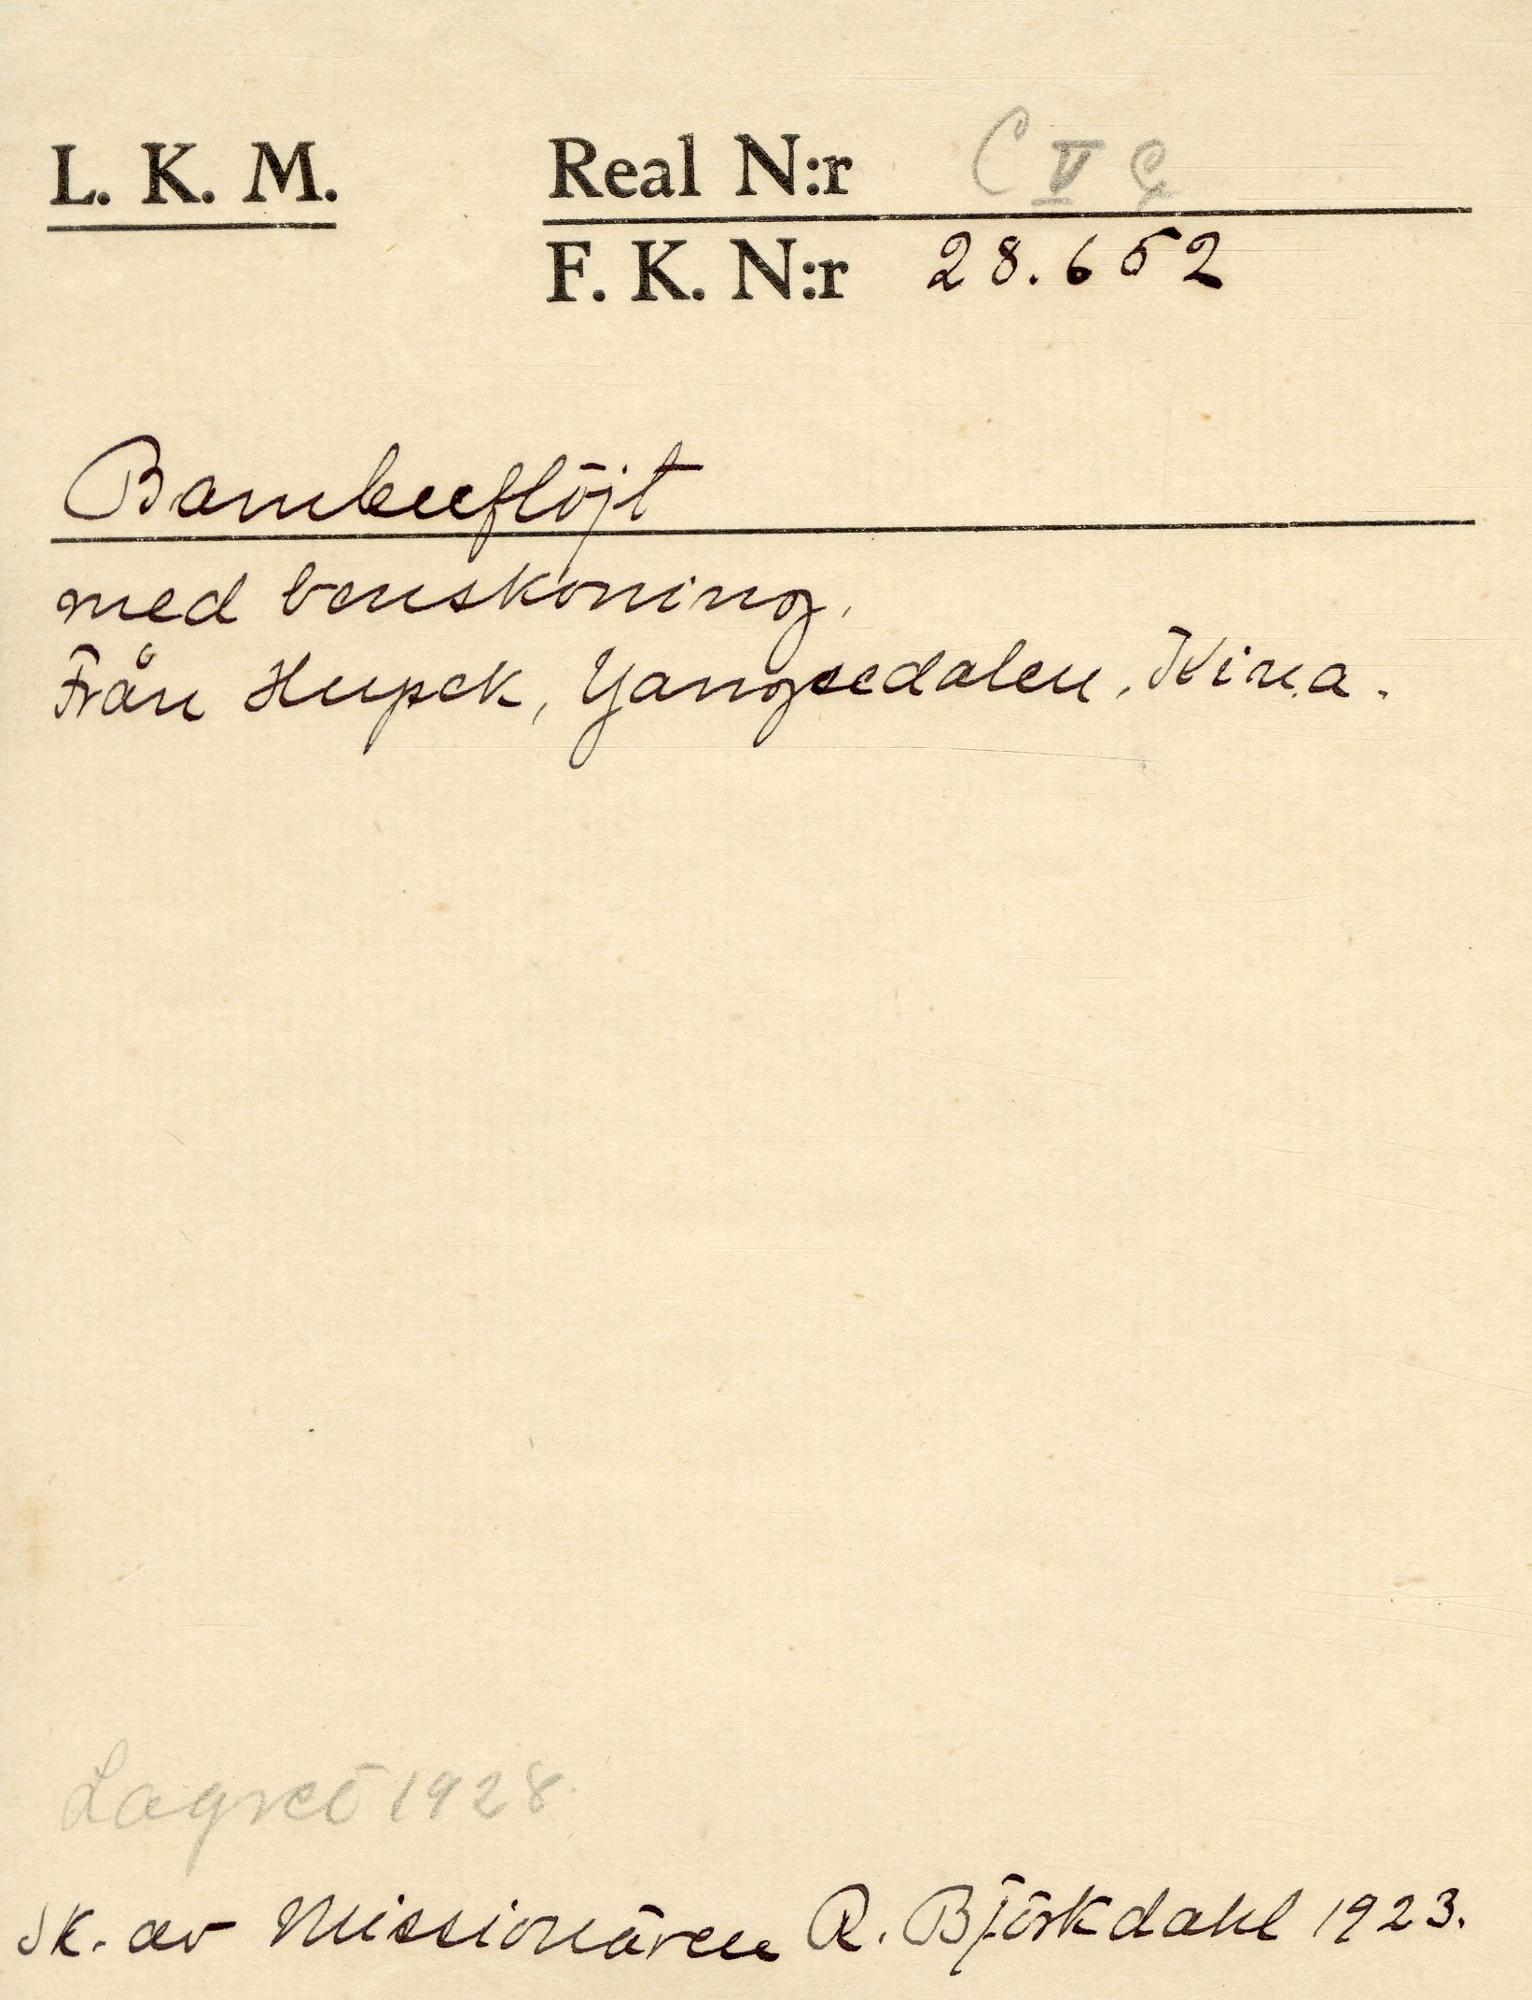 L. K. M.
Real N:r C V G
F. K. N:r 28.652
Bambuflöjt
med benskoning.
Från Hupek, Yangsedalen, Kina.
Lagret 1928.
Sk. av Missionären R. Björkdahl 1923.